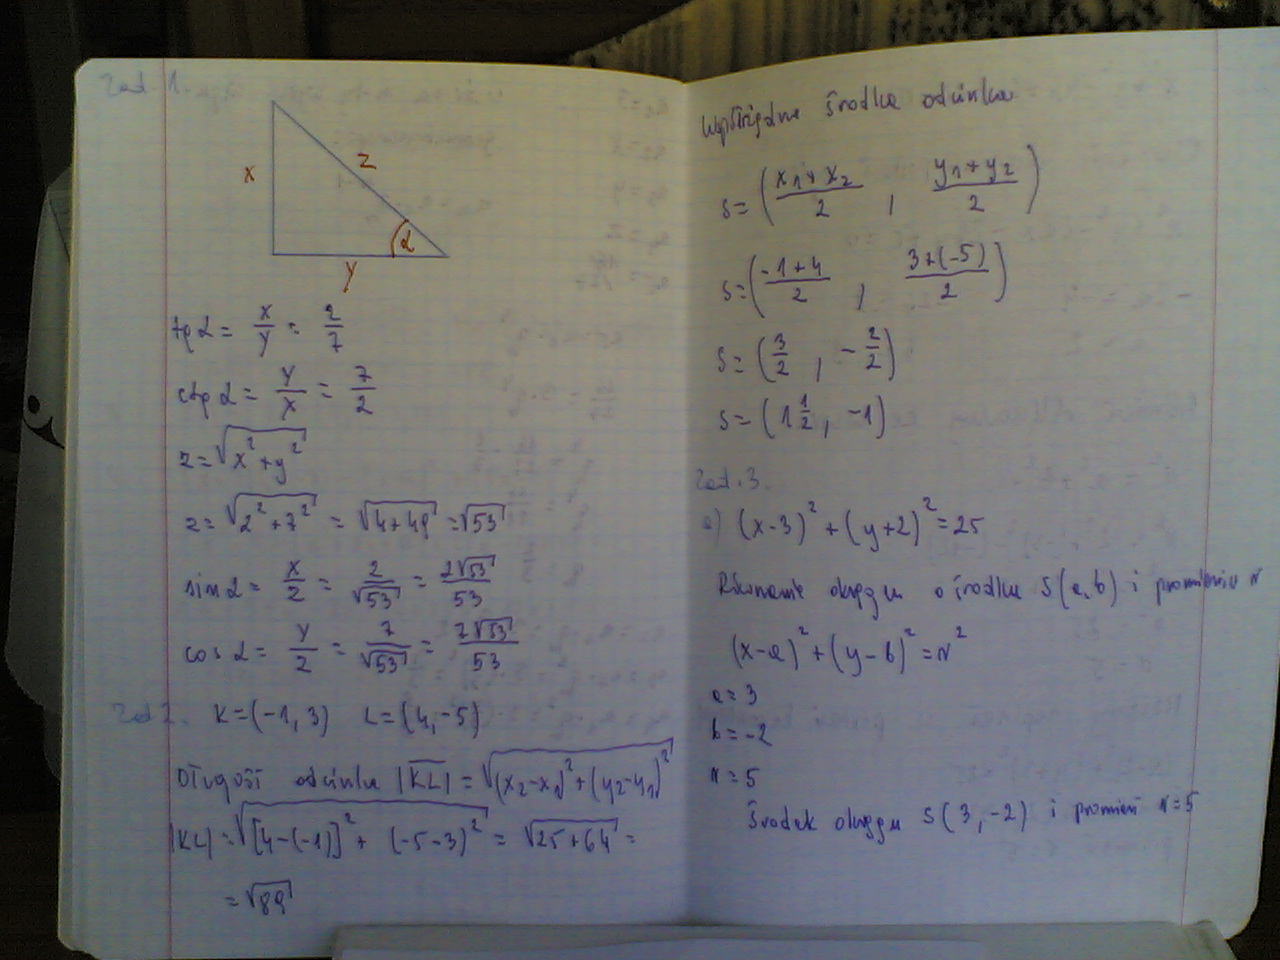 Zad. 1.
x
z
α
y
tg α = x/y = 2/7
ctg α = y/x = 7/2
z = √(x² + y²)
z = √(2² + 7²) = √(4 + 49) = √53
sin α = x/z = 2/√53 = 2√53/53
cos α = y/z = 7/√53 = 7√53/53
Zad 2. K = (-1, 3) L = (4, -5)
Długość odcinka |KL| = √((x₂ - x₁)² + (y₂ - y₁)²)
|KL| = √([4 - (-1)]² + (-5 - 3)²) = √(25 + 64) =
= √89
Współrzędne środka odcinka
S = ((x₁ + x₂)/2 , (y₁ + y₂)/2)
S = ((-1 + 4)/2 , (3 + (-5))/2)
S = (3/2 , -2/2)
S = (1 1/2, -1)
Zad. 3.
a) (x - 3)² + (y + 2)² = 25
Równanie okręgu o środku S(a, b) i promieniu r
(x - a)² + (y - b)² = r²
a = 3
b = -2
r = 5
Środek okręgu S(3, -2) i promień r = 5